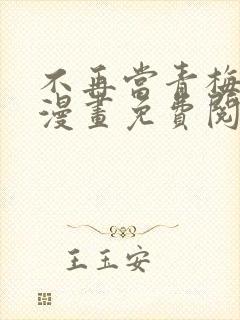 不再当青梅
漫画免费阅
王玉安